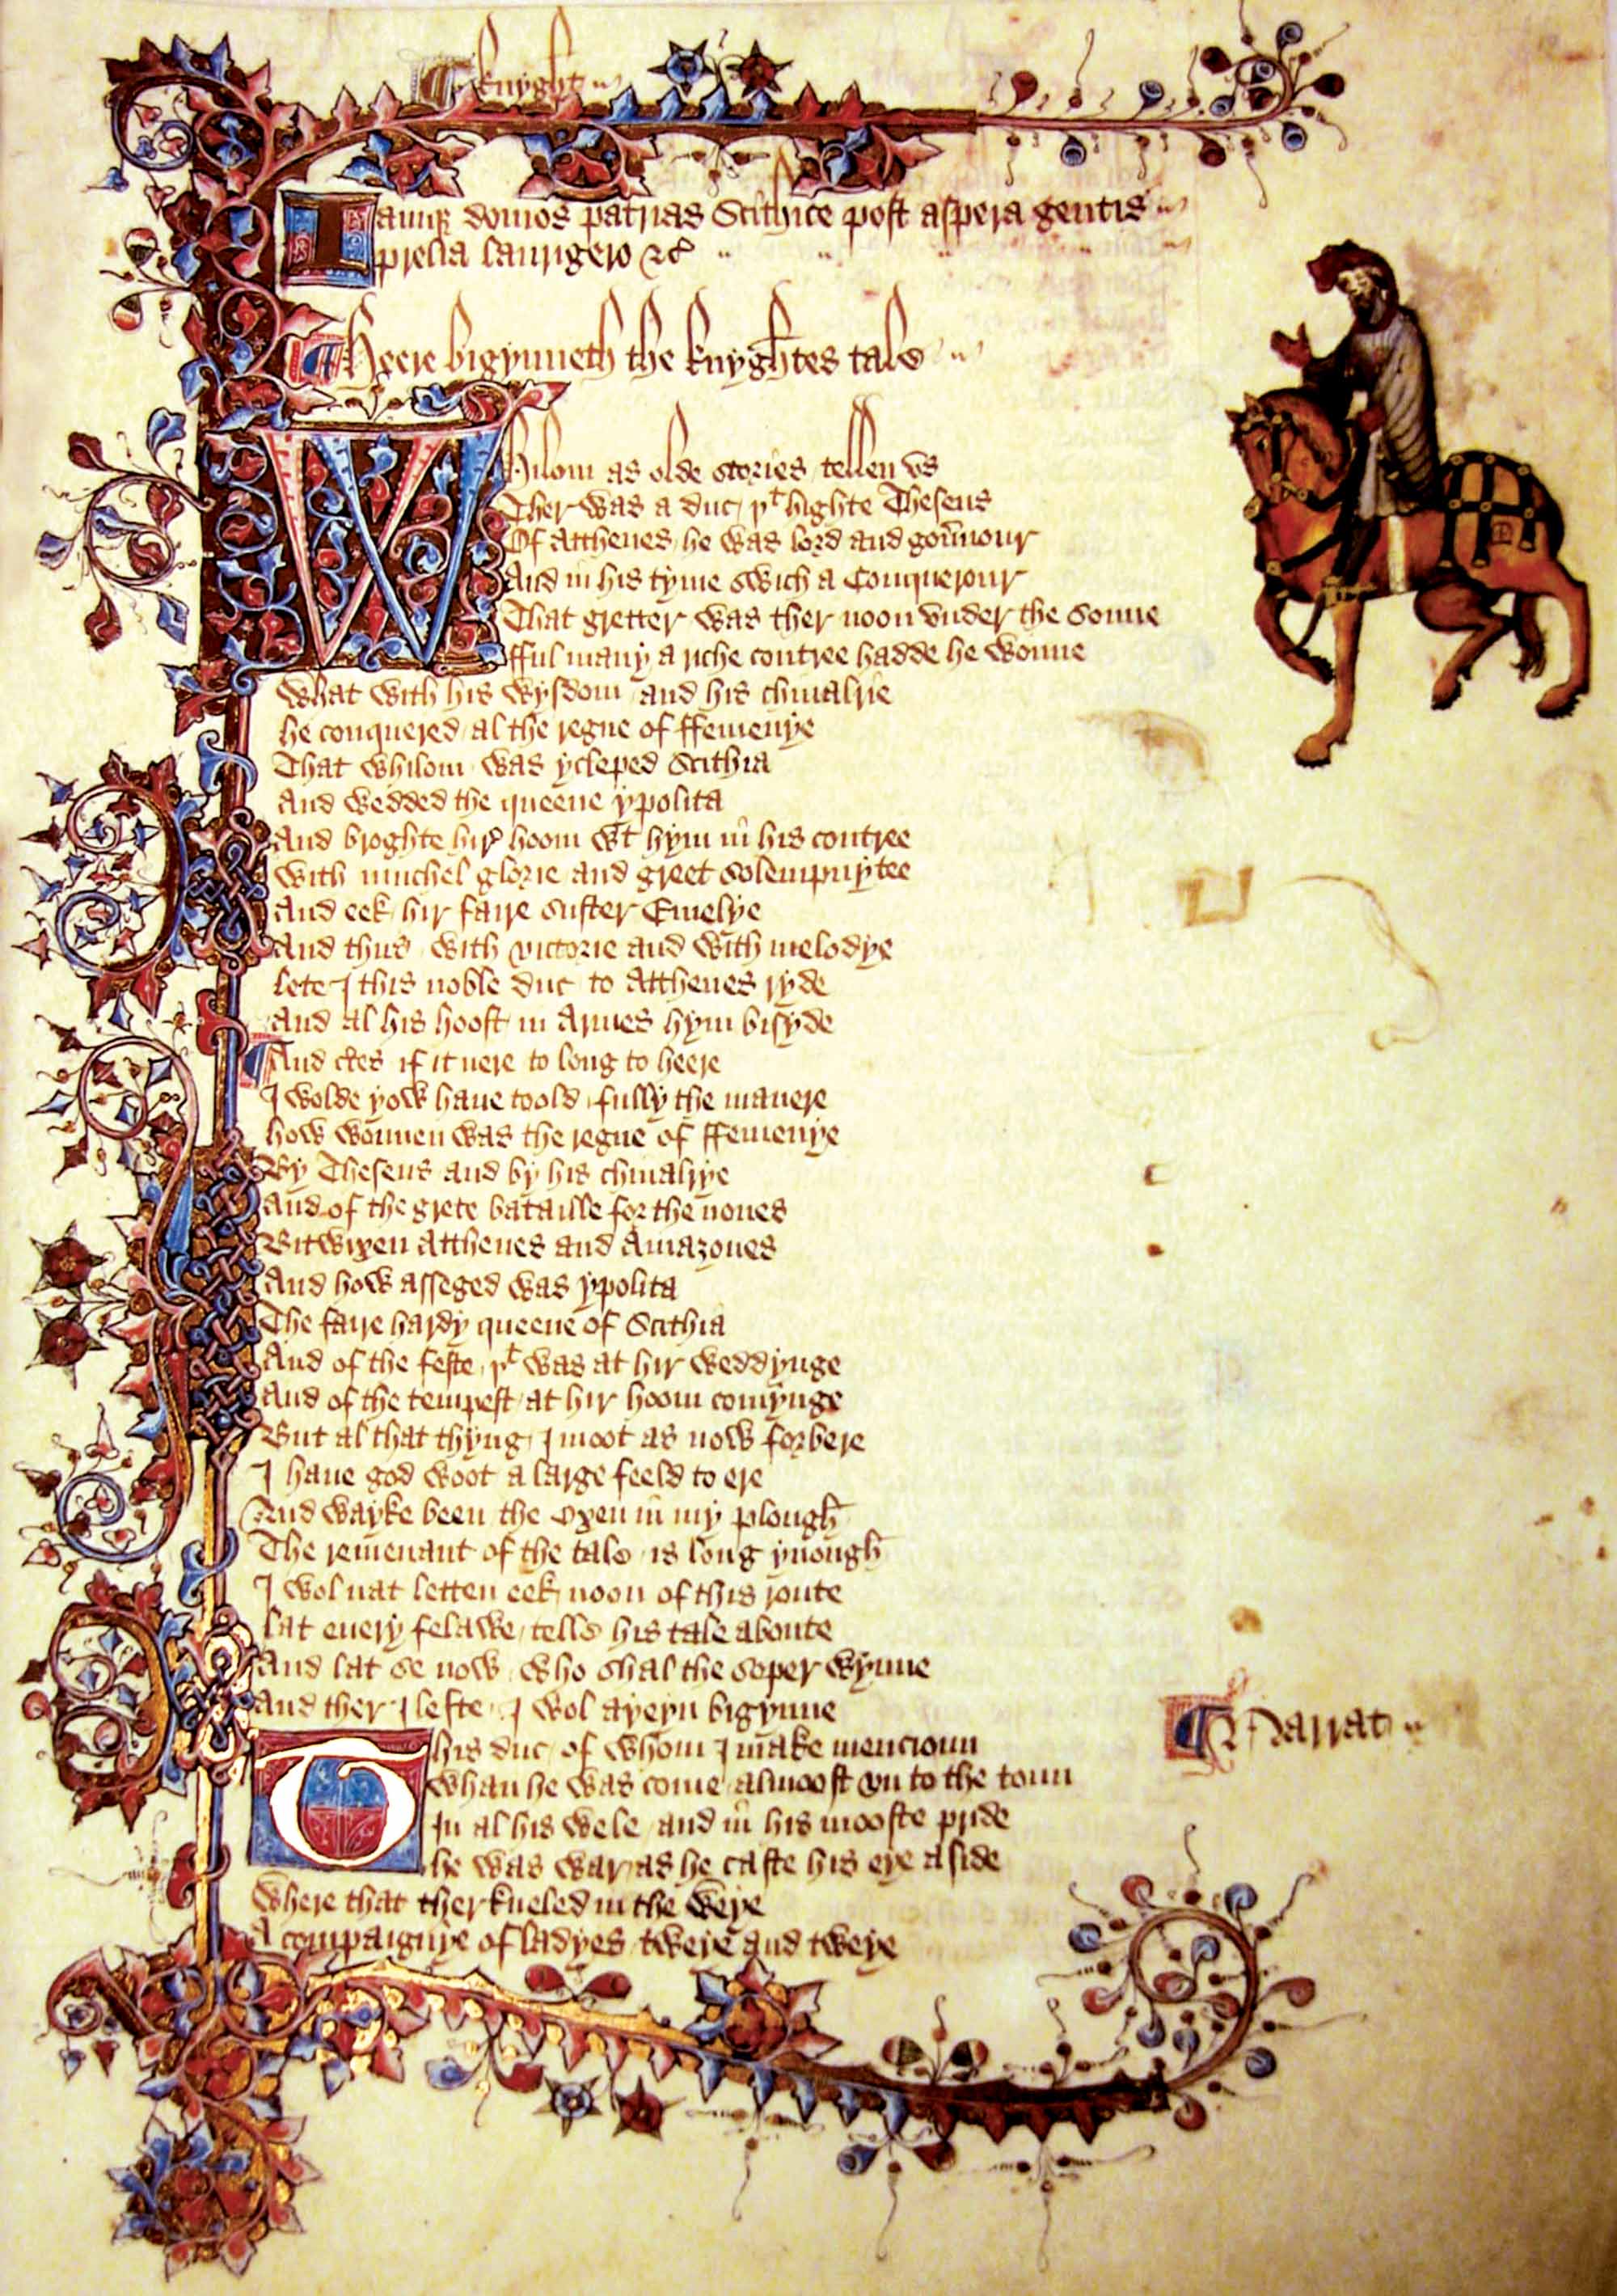 ¶ knyght
Iamq; domos patrias Scithice post aspera gentis
prelia laurigero &c
¶ Heere bigynneth the knyghtes tale
Whilom as olde stories tellen vs
Ther was a duc / þt highte Theseus
Of Atthenes / he was lord and gouernour
And in his tyme swich a Conquerour
That gretter was ther noon vnder the sonne
fful many a riche contree hadde he wonne
What with his wysdom / and his chiualrie
he conquered / al the regne of ffemenye
That whilom / was ycleped Scithia
And wedded the queene ypolita
And broghte hir hoom wt hym in his contree
With muchel glorie and greet solempnytee
And eek hir faire suster Emelye
And thus / with victorie and with melodye
lete I this noble duc / to Atthenes ryde
And al his hoost / in Armes hym bisyde
¶ And certes if it nere to long to heere
I wolde yow haue toold / fully the manere
how wonnen was the regne of ffemenye
By Theseus and by his chiualrye
And of the grete bataille for the nones
Bitwixen Atthenes and Amazones
And how asseged was ypolita
The faire hardy queene of Scithia
And of the feste / þt was at hir weddynge
And of the tempest / at hir hoom comynge
But al that thyng / I moot as now forbere
I haue god woot a large feeld to ere
And wayke been / the Oxen in my plough
The remenant of the tale / is long ynough
I wol nat letten eek / noon of this route
lat euery felawe / telle his tale aboute
And lat se now / who shal the soper wynne
And ther I lefte / I wol ayeyn bigynne
This duc / of whom I make mencioun ¶ Narrat
Whan he was come / almoost vn to the toun
In al his wele / and in his mooste pride
he was war / as he caste his eye aside
Where that ther kneled in the weye
A compaignye of ladyes / tweye and tweye